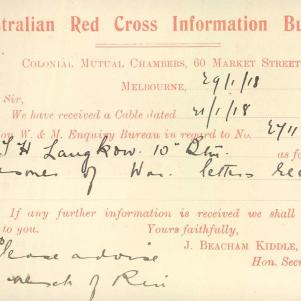 stralian Red Cross Information Bu
Colonial Mutual Chambers, 60 Market Street
Melbourne, 29/1/18
Sir,
We have received a Cable dated 21/1/18
on W. & M. Enquiry Bureau in regard to No.
J H Langkow. 10" Btn. as fo
soner of War letters rec
If any further information is received we shall
to you. Yours faithfully,
J. Beacham Kiddle,
Hon. Secr
Please advise
of